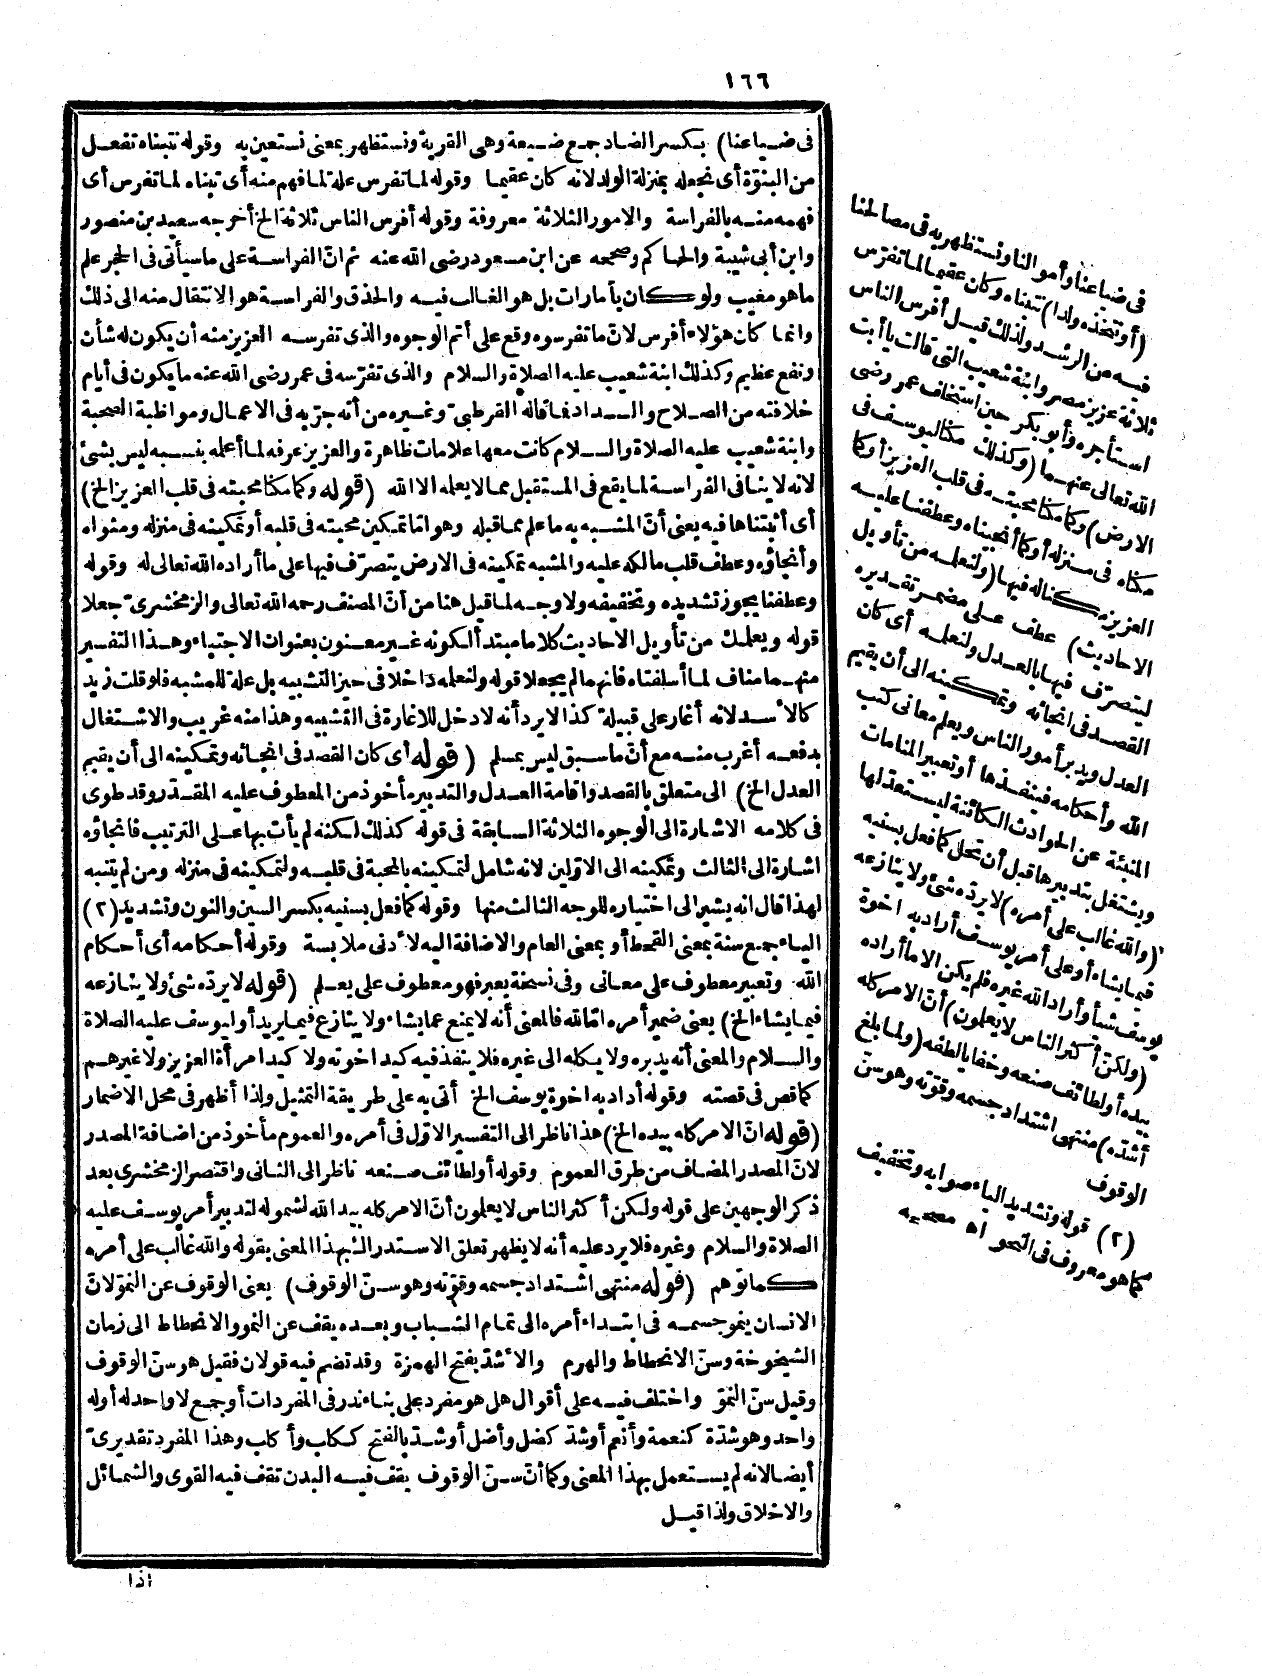 ١٦٦
فى ضياعنا) بكسر الضاد جمع ضيعة وهى القرية ونستظهر بمعنى نستعين به وقوله تتبناه تفعل
من البنوّة أى نجعله بمنزلة الولد لانه كان عقيما وقوله لما تفرس علة لما فهم منه أى تبناه لما تفرس أى
فهمه منه بالفراسة والامور الثلاثة معروفة وقوله أفرس الناس ثلاثة الخ أخرجه سعيد بن منصور
وابن أبى شيبة والحاكم وصححه عن ابن مسعود رضى الله عنه ثم انّ الفراسة على ما سيأتى فى الحجر علم
ما هو مغيب ولو كان بأمارات بل هو الغالب فيه والحذق والفراسة هو الانتقال منه الى ذلك
وانما كان هؤلاء أفرس لانّ ما تفرسوه وقع على أتم الوجوه والذى تفرسه العزيز منه أن يكون له شأن
ونفع عظيم وكذلك ابنة شعيب عليه الصلاة والسلام والذى تفرّسه فى عمر رضى الله عنه ما يكون فى أيام
خلافته من الصلاح والسداد فما قاله القرطبىّ وغيره من أنه جرّبه فى الاعمال ومواظبة الصحبة
وابنة شعيب عليه الصلاة والسلام كانت معها علامات ظاهرة والعزيز عرفه لما أعلمه بنسبه ليس بشئ
لانه لا ينافى الفراسة لما يقع فى المستقبل مما لا يعلمه الا الله (قوله وكما مكنا محبته فى قلب العزيز الخ)
أى أثبتناها فيه يعنى أنّ المشبه به ما علم مما قبله وهو امّا تمكين محبته فى قلبه أو تمكينه فى منزله ومثواه
وأنجاؤه وعطف قلب مالكه عليه والمشبه تمكينه فى الارض يتصرّف فيها على ما أراده الله تعالى له وقوله
وعطفنا يجوز تشديده وتخفيفه ولا وجه لما قيل هنا من أنّ المصنف رحمه الله تعالى والزمخشرىّ جعلا
قوله ويعلمك من تأويل الاحاديث كلاما مبتدأ لكونه غير معنون بعنوان الاجتباء وهذا التفسير
منهما مناف لما أسلفناه فانهما لم يجعلا قوله ولنعلمه داخلا فى حيز التشبيه بل علة للمشبه فلو قلت زيد
كالأسد لانه أغار على قبيلة كذا لا يرد أنه لا دخل للاغارة فى التشبيه وهذا منه غريب والاشتغال
بدفعه أغرب منه مع أنّ ما سبق ليس بمسلم (قوله أى كان القصد فى انجائه وتمكينه الى أن يقيم
العدل الخ) الى متعلق بالقصد واقامة العدل والتدبير مأخوذ من المعطوف عليه المقدّر وقد طوى
فى كلامه الاشارة الى الوجوه الثلاثة السابقة فى قوله كذلك لكنه لم يأت بها على الترتيب فانجاؤه
اشارة الى الثالث وتمكينه الى الاوّلين لانه شامل لتمكينه بالمحبة فى قلبه ولتمكينه فى منزله ومن لم يتنبه
لهذا قال انه يشير الى اختياره للوجه الثالث منها وقوله كما فعل بسنيه بكسر السين والنون وتشديد (٢)
الياء جمع سنة بمعنى القحط أو بمعنى العام والاضافة اليه لأدنى ملابسة وقوله أحكامه أى أحكام
الله وتعبير معطوف على معانى وفى نسخة يعبر فهو معطوف على يعلم (قوله لا يردّه شئ ولا ينازعه
فيما يشاء الخ) يعنى ضمير أمره امّا لله فالمعنى أنه لا يمنع عما يشاء ولا ينازع فيما يريد أو ليوسف عليه الصلاة
والسلام والمعنى أنه يدبره ولا يكله الى غيره فلا ينفذ فيه كيد اخوته ولا كيد امرأة العزيز ولا غيرهم
كما قص فى قصته وقوله أراد به اخوة يوسف الخ أتى به على طريقة التمثيل ولذا أظهر فى محل الاضمار
(قوله انّ الامر كله بيده الخ) هذا ناظر الى التفسير الاوّل فى أمره والعموم مأخوذ من اضافة المصدر
لانّ المصدر المضاف من طرق العموم وقوله أو لطائف صنعه ناظر الى الثانى واقتصر الزمخشرى بعد
ذكر الوجهين على قوله ولكن أكثر الناس لا يعلمون أنّ الامر كله بيد الله لشموله لتدبير أمر يوسف عليه
الصلاة والسلام وغيره فلا يرد عليه أنه لا يظهر تعلق الاستدراك بهذا المعنى بقوله والله غالب على أمره
كما توهم (قوله منتهى اشتداد جسمه وقوّته وهو سنّ الوقوف) يعنى الوقوف عن النموّ لانّ
الانسان ينمو جسمه فى ابتداء أمره الى تمام الشباب وبعده يقف عن النمو والانحطاط الى زمان
الشيخوخة وسنّ الانحطاط والهرم والأشدّ بفتح الهمزة وقد تضم فيه قولان فقيل هو سنّ الوقوف
وقيل سنّ النموّ واختلف فيه على أقوال هل هو مفرد على بناء ندر فى المفردات أو جمع لا واحد له أو له
واحد وهو شدّة كنعمة وأنعم أو شدّ كضل وأضل أو شدّ بالفتح ككلب وأكلب وهذا المفرد تقديرىّ
أيضا لانه لم يستعمل بهذا المعنى وكما أنّ سنّ الوقوف يقف فيه البدن تقف فيه القوى والشمائل
والاخلاق ولذا قيل
اذا
فى ضياعنا وأموالنا ونستظهر به فى مصالحنا
(أو نتخذه ولدا) نتبناه وكان عقيما لما تفرّس
فيه من الرشد ولذلك قيل أفرس الناس
ثلاثة عزيز مصر وابنة شعيب التى قالت يا أبت
استأجره وأبو بكر حين استخلف عمر رضى
الله تعالى عنهما (وكذلك مكنا ليوسف فى
الارض) وكما مكنا محبته فى قلب العزيز أو كما
مكناه فى منزله أو كما أنجيناه وعطفنا عليه
العزيز مكنا له فيها (ولنعلمه من تأويل
الاحاديث) عطف على مضمر تقديره
ليتصرّف فيها بالعدل ولنعلمه أى كان
القصد فى انجائه وتمكينه الى أن يقيم
العدل ويدبر أمور الناس ويعلم معانى كتب
الله وأحكامه فينفذها أو تعبير المنامات
المنبئة عن الحوادث الكائنة ليستعد لها
ويشتغل بتدبيرها قبل أن تحل كما فعل بسنيه
(والله غالب على أمره) لا يردّه شئ ولا ينازعه
فيما يشاء أو على أمر يوسف أراد به اخوة
يوسف شيأ وأراد الله غيره فلم يكن الا ما أراده
(ولكنّ أكثر الناس لا يعلمون) أنّ الامر كله
بيده أو لطائف صنعه وخفايا لطفه (ولما بلغ
أشدّه) منتهى اشتداد جسمه وقوّته وهو سنّ
الوقوف
(٢) قوله وتشديد الياء صوابه وتخفيف
كما هو معروف فى النحو اه مصححه